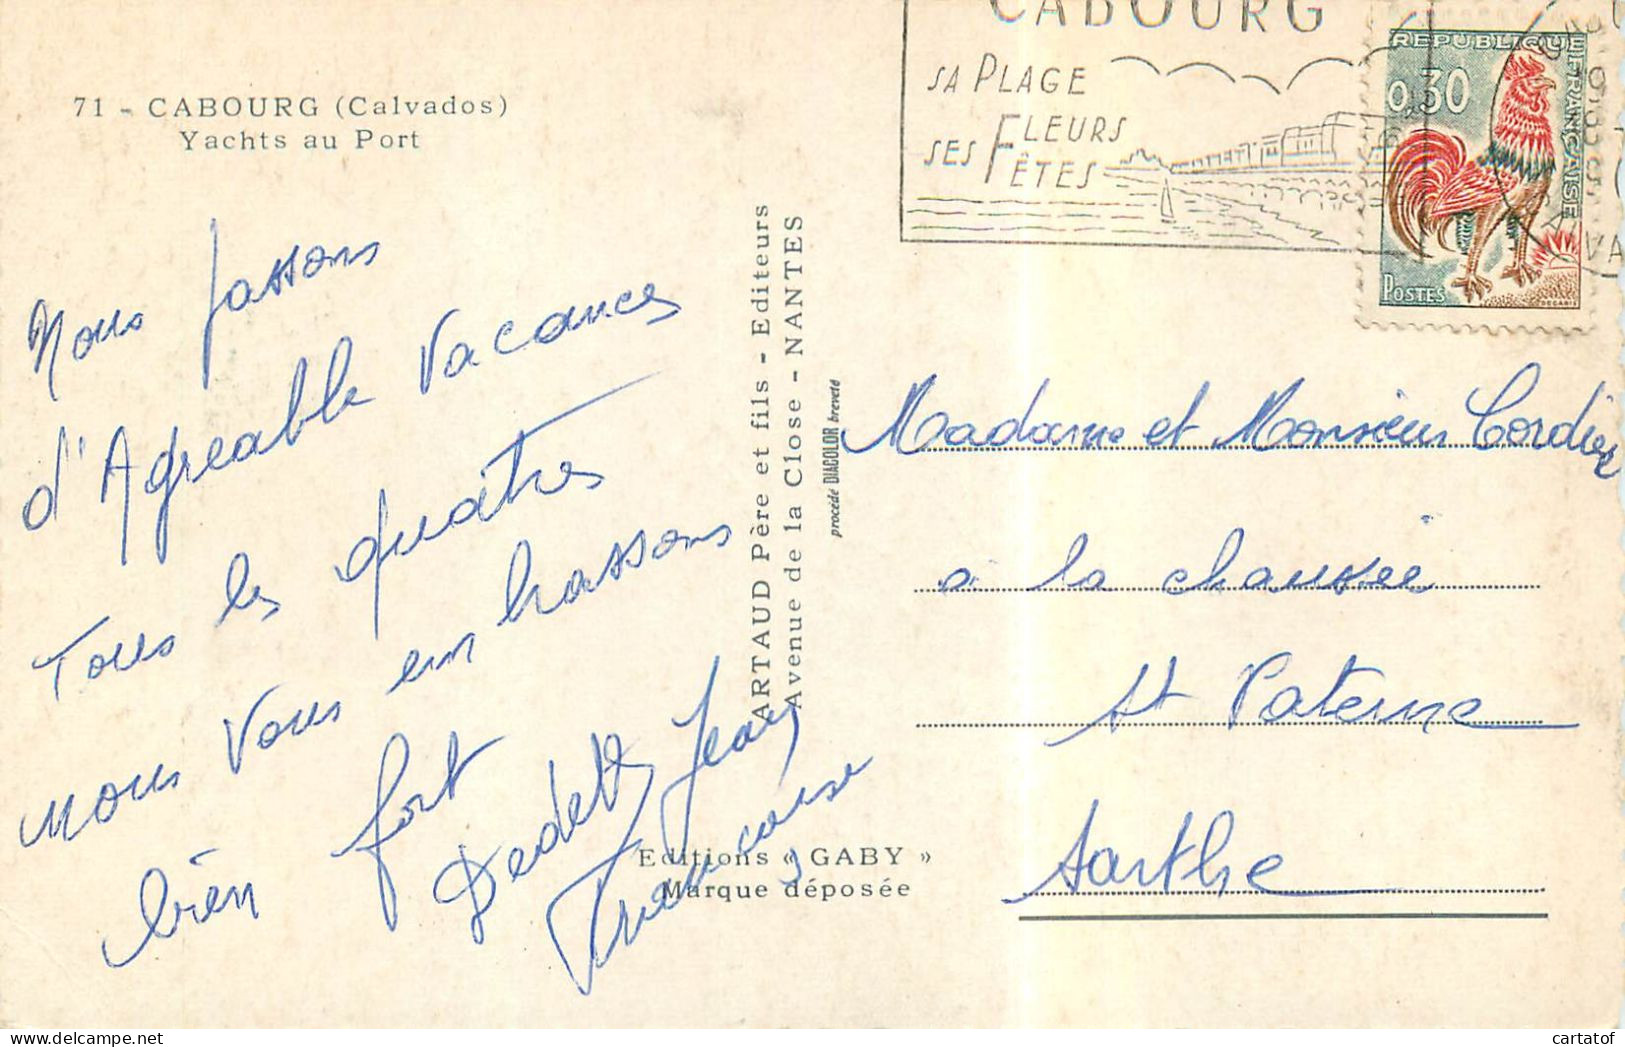 71 - CABOURG (Calvados)
Yachts au Port
Nous passons
d'Agreable Vacances
Tous les quatres
nous Vous embrassons
bien fort
Dedette Jean
Francoise
ARTAUD Père et fils - Editeurs
Avenue de la Close - NANTES
procédé DIACOLOR breveté
Editions « GABY »
Marque déposée
CABOURG
SA PLAGE
SES FLEURS
FÊTES
REPUBLIQUE FRANÇAISE
0,30
POSTES
DECARIS
Madame et Monsieur Cordier
a la chaussée
St Paterne
Sarthe
cartatof